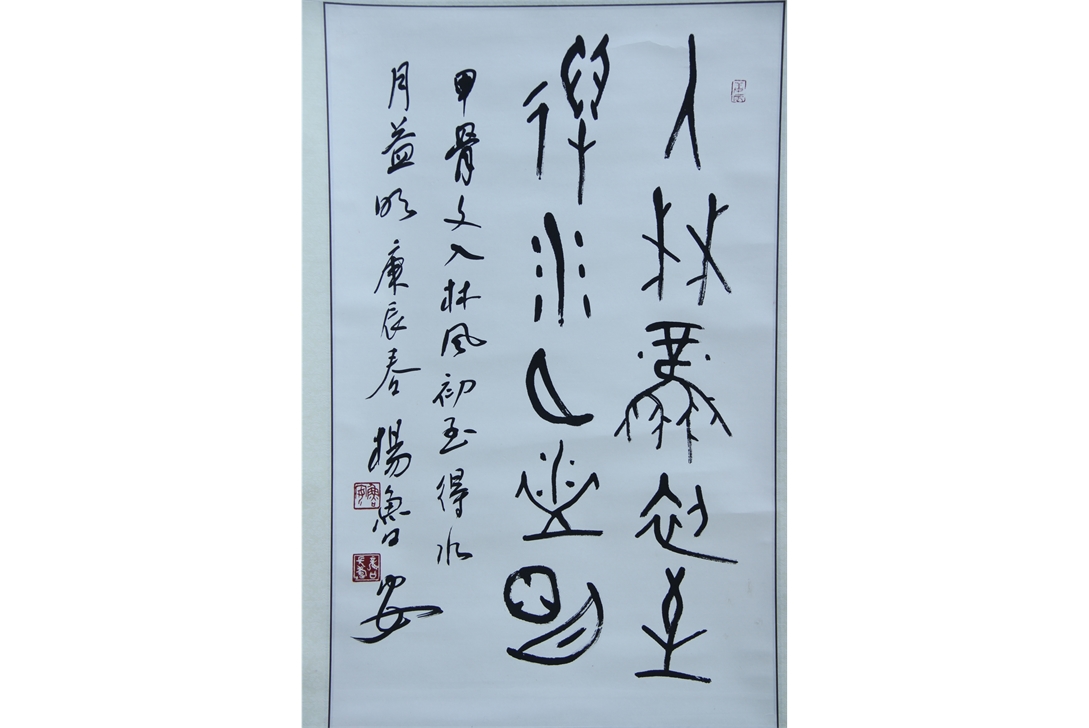 入林風初至
得水月益明
甲骨文入林風初至得水
月益明 庚辰春 楊魯安